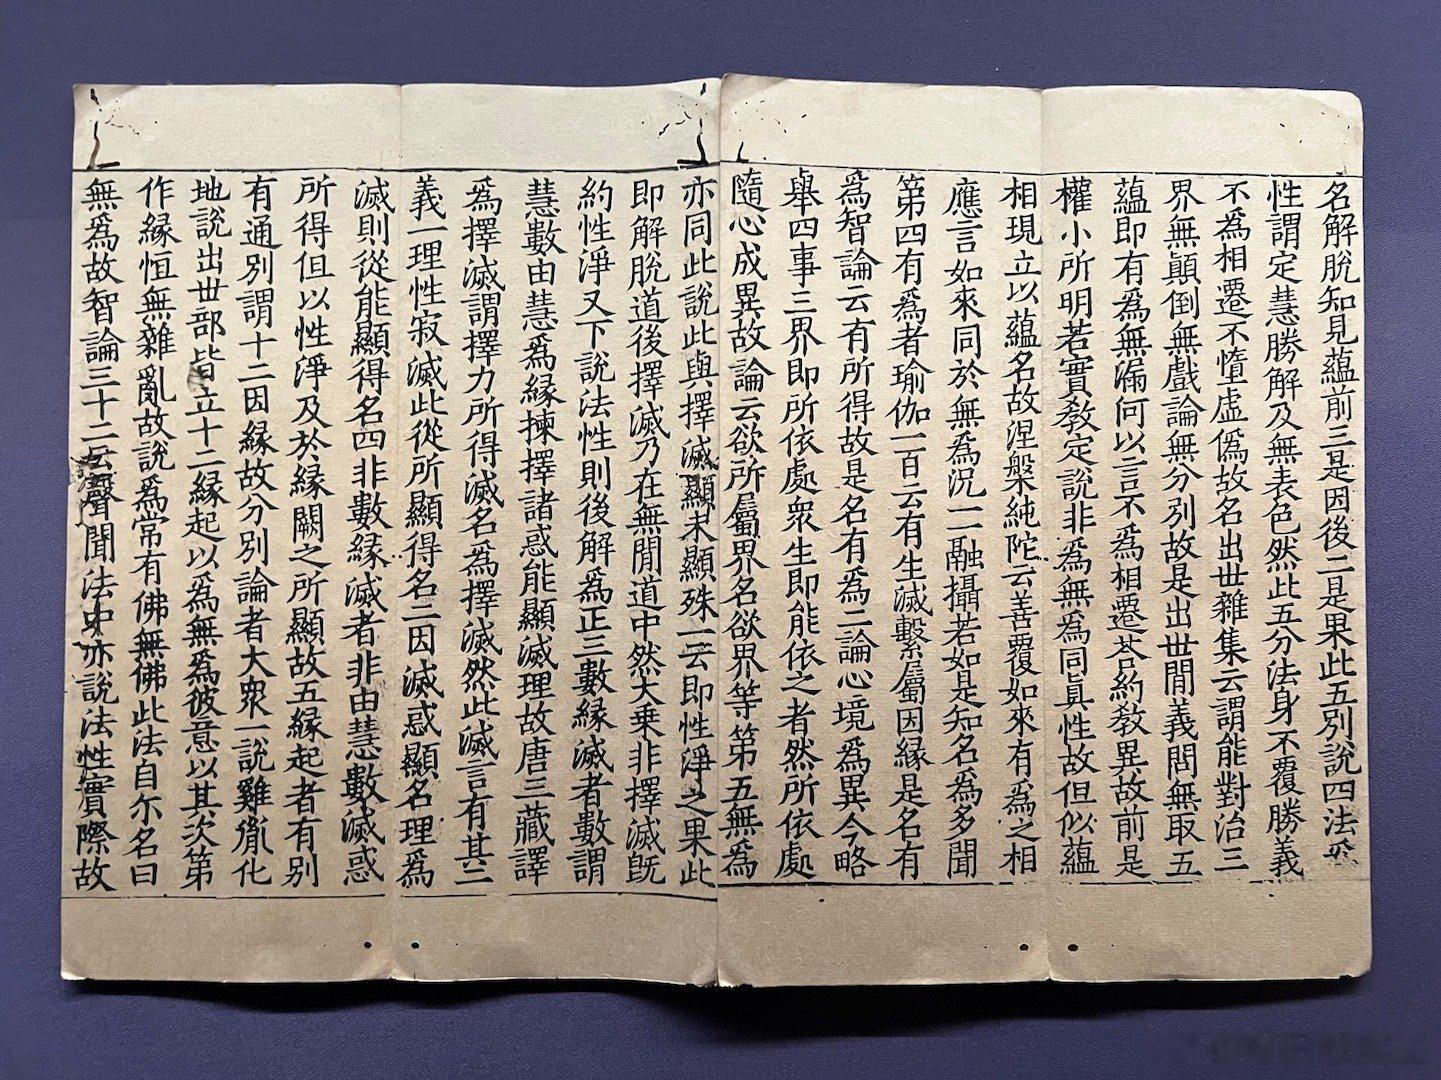 名解脫知見蘊前三是因後二是果此五別說四法爲
性謂定慧勝解及無表色然此五分法身不覆勝義
不爲相遷不墮虛僞故名出世雜集云謂能對治三
界無顛倒無戲論無分別故是出世間義問無取五
蘊即有爲無漏何以言不爲相遷荅約敎異故前是
權小所明若實敎定說非爲無爲同眞性故但似蘊
相現立以蘊名故涅槃純陀云善覆如來有爲之相
應言如來同於無爲況一一融攝若如是知名爲多聞
第四有爲者瑜伽一百云有生滅繫屬因緣是名有
爲智論云有所得故是名有爲二論心境爲異今略
舉四事三界即所依處衆生即能依之者然所依處
隨心成異故論云欲所屬界名欲界等第五無爲
亦同此說此與擇滅顯未顯殊一云即性淨之果此
即解脫道後擇滅乃在無間道中然大乘非擇滅旣
約性淨又下說法性則後解爲正三數緣滅者數謂
慧數由慧爲緣揀擇諸惑能顯滅理故唐三藏譯
爲擇滅謂擇力所得滅名爲擇滅然此滅言有其二
義一理性寂滅此從所顯得名二因滅惑顯名理爲
滅則從能顯得名四非數緣滅者非由慧數滅惑
所得但以性淨及於緣闕之所顯故五緣起者有別
有通別謂十二因緣故分別論者大衆一說雞胤化
地說出世部皆立十二緣起以爲無爲彼意以其次第
作緣恒無雜亂故說爲常有佛無佛此法自尒名曰
無爲故智論三十二云聲聞法中亦說法性實際故